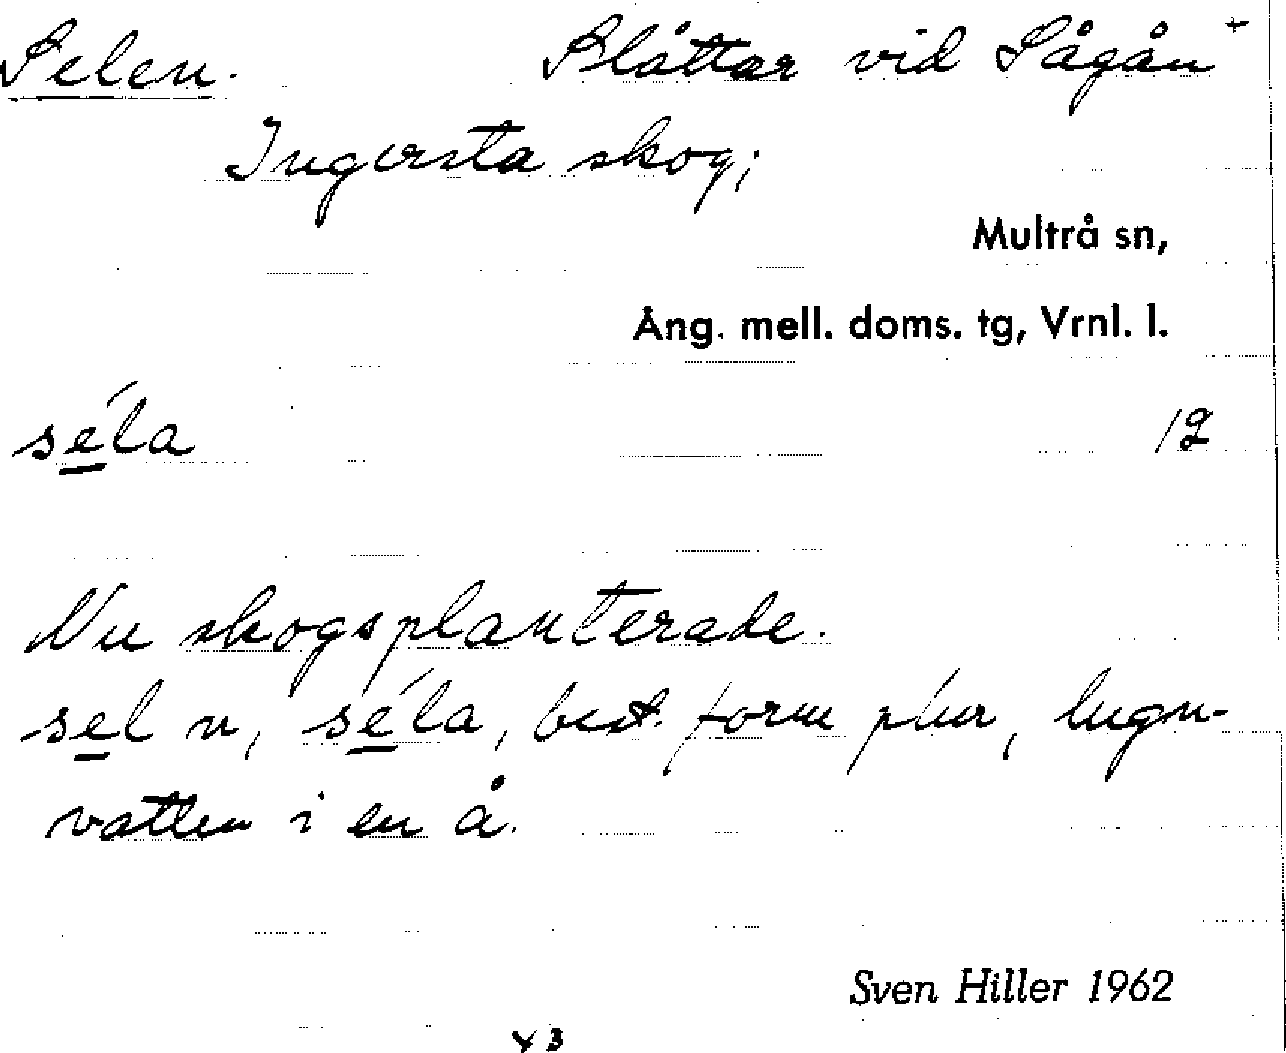 Selen. Slåttar vid Sågån +
Ingersta skog;
Multrå sn,
Ång. mell. doms. tg, Vrnl. l.
séla 12
Nu skogsplanterade.
sel n, séla, best. form plur, lugn-
vatten i en å.
Sven Hiller 1962
x 3